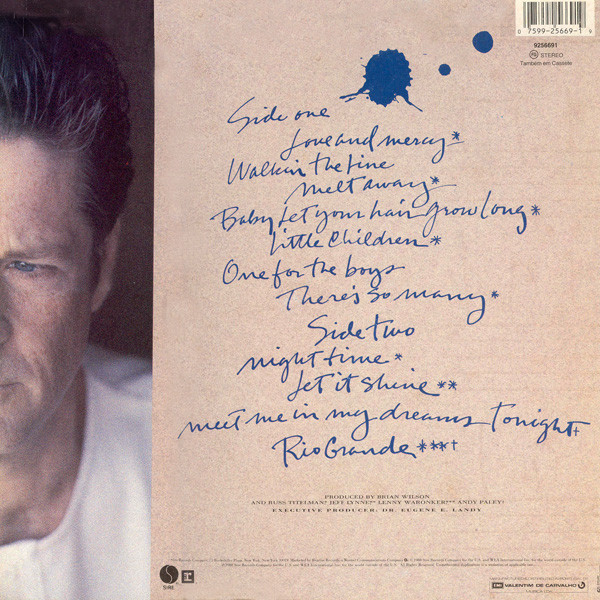 0 7599-25669-1 9
9256691
STEREO
Também em Cassete
Side one
Love and mercy*
Walkin' the line
Melt away*
Baby let your hair grow long*
Little Children*
One for the boys
There's so many*
Side two
night time*
Let it shine**
meet me in my dreams tonight†
Rio Grande***†
PRODUCED BY BRIAN WILSON
AND RUSS TITELMAN* JEFF LYNNE** LENNY WARONKER*** ANDY PALEY†
EXECUTIVE PRODUCER: DR. EUGENE E. LANDY
SIRE
EMI VALENTIM DE CARVALHO